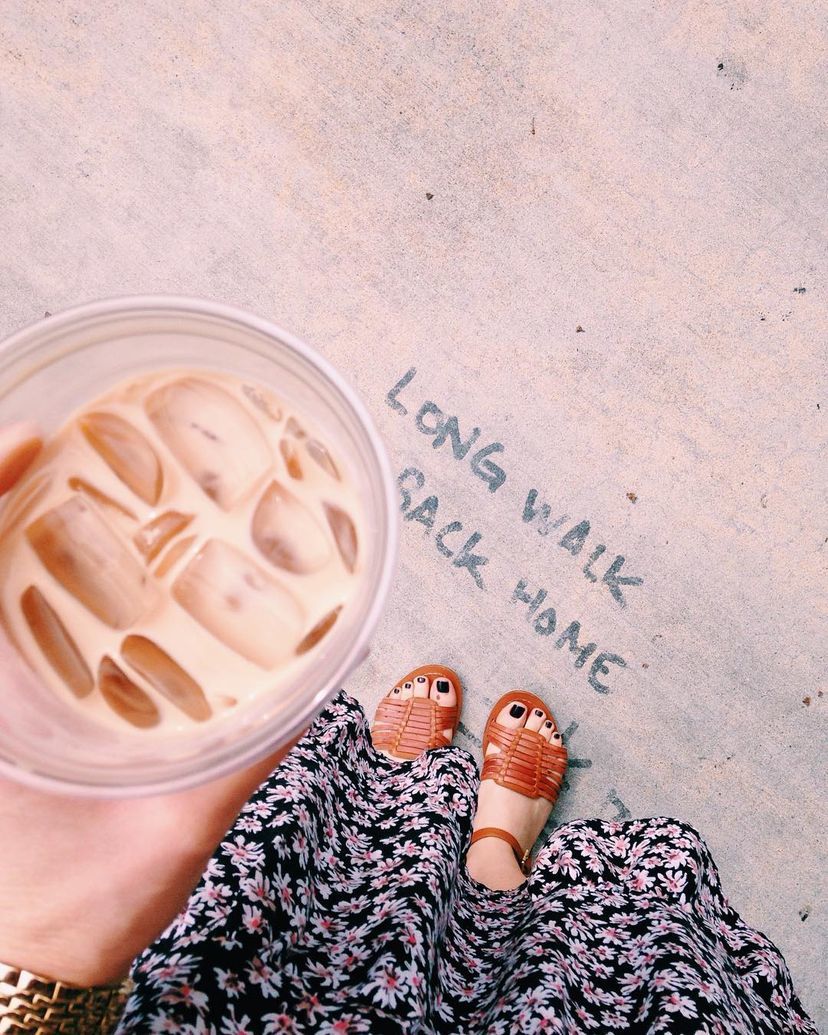 LONG WALK
BACK HOME